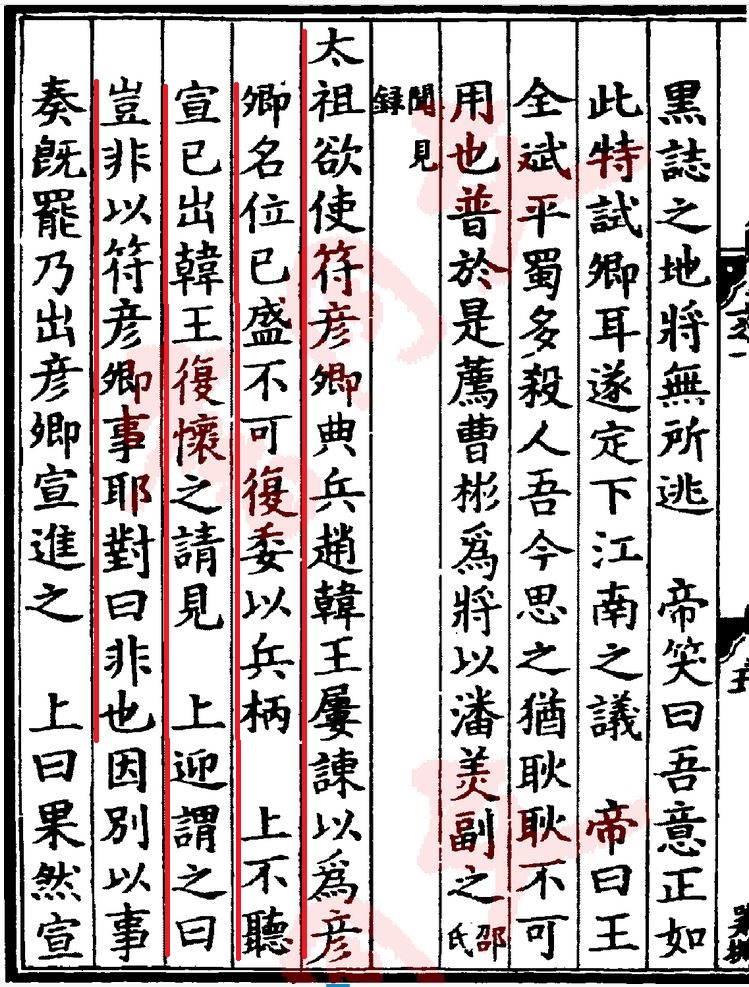 黑誌之地將無所逃　帝笑曰吾意正如
此特試卿耳遂定下江南之議　帝曰王
全斌平蜀多殺人吾今思之猶耿耿不可
用也普於是薦曹彬爲將以潘美副之邵氏
聞見録
太祖欲使符彦卿典兵趙韓王屢諫以爲彦
卿名位已盛不可復委以兵柄　上不聽
宣已出韓王復懷之請見　上迎謂之曰
豈非以符彦卿事耶對曰非也因別以事
奏旣罷乃出彦卿宣進之　上曰果然宣